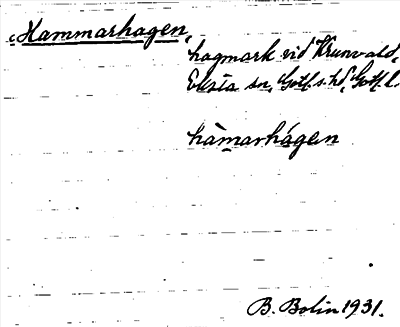 Hammarhagen,
hagmark vid Krunvald,
Eksta sn, Gotl. s. hd, Gotl. l.
hàmarhágen
B. Bolin 1931.